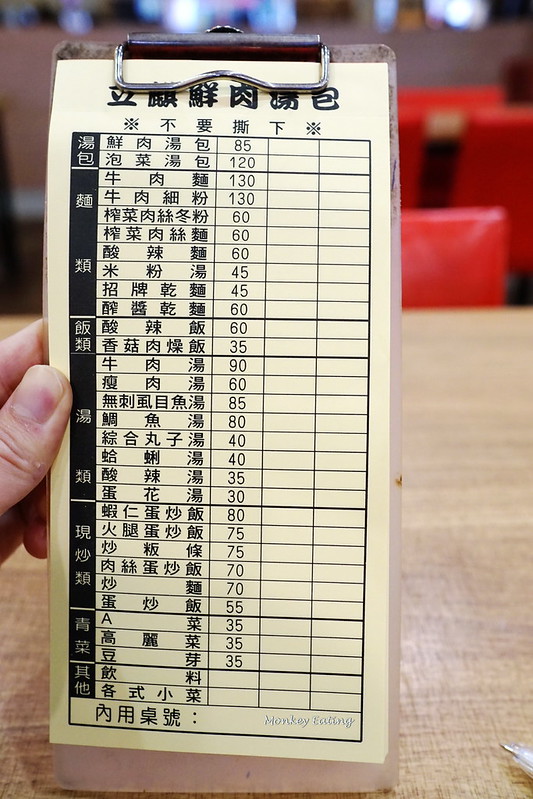 鮮肉湯包
※ 不要撕下 ※
湯包
鮮肉湯包 85
泡菜湯包 120
麵類
牛肉麵 130
牛肉細粉 130
榨菜肉絲冬粉 60
榨菜肉絲麵 60
酸辣麵 60
米粉湯 45
招牌乾麵 45
醡醬乾麵 60
飯類
酸辣飯 60
香菇肉燥飯 35
湯類
牛肉湯 90
瘦肉湯 60
無刺虱目魚湯 85
鯛魚湯 80
綜合丸子湯 40
蛤蜊湯 40
酸辣湯 35
蛋花湯 30
現炒類
蝦仁蛋炒飯 80
火腿蛋炒飯 75
炒粄條 75
肉絲蛋炒飯 70
炒麵 70
蛋炒飯 55
青菜
A菜 35
高麗菜 35
豆芽 35
其他
飲料
各式小菜
內用桌號：
Monkey Eating